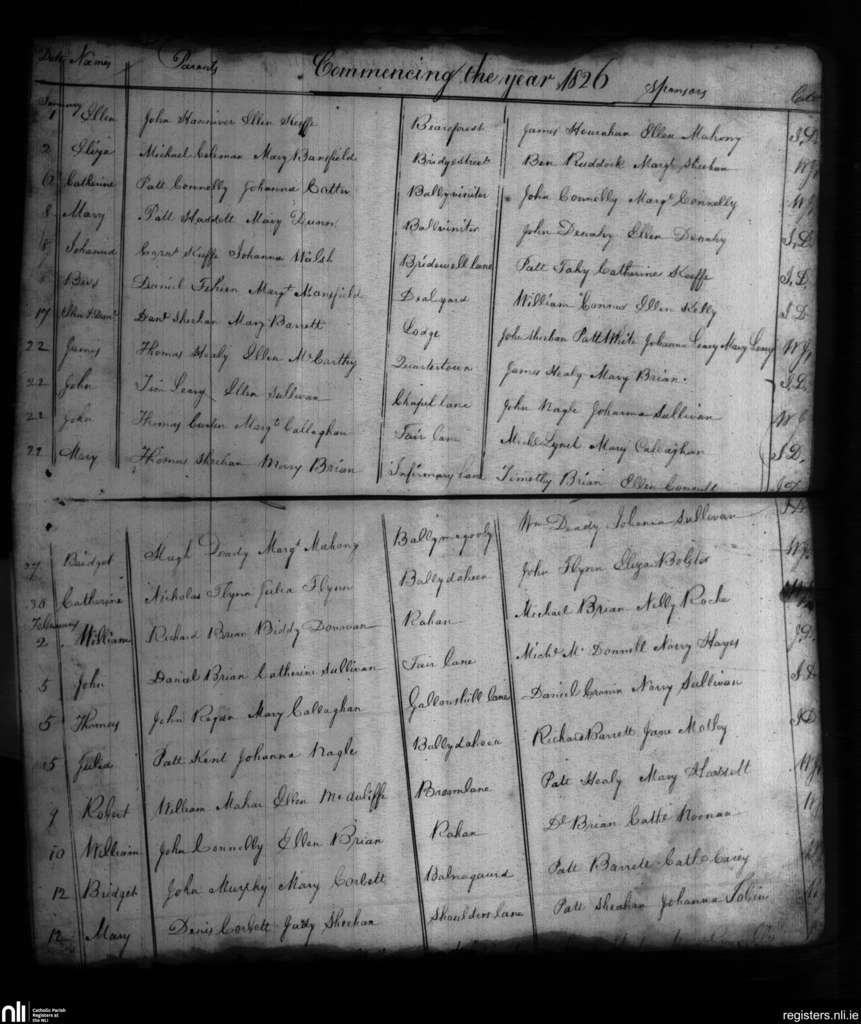 Date Names Parents Commencing the year 1826 Sponsors
January
1 Ellen John Ellen Keeffe Bearforest James Hourahan Ellen Mahony J.D.
2 Eliza Michael Coleman Mary Bansfield Bridgestreet Ben Ruddock Margt Sheehan
6 Catherine Patt Connolly Johanna Cotter Ballyviniter John Connolly Margt Connolly
8 Mary Patt Haddott Mary Dunn Ballviniter John Denahy Ellen Denahy J.D.
8 Johanna Keeffe Johanna Walsh Bridewell lane Patt Fahy Catherine Keeffe J.D.
Daniel Margt Mansfield Dealyard William Connor Ellen Kelly J D
17 Danl Sheehan Mary Barrett Lodge John Sheehan Patt White Johanna Leary Mary Leary
22 James Thomas Healy Ellen McCarthy Quartertown James Healy Mary Brian. J.D.
22 John Tim Leary Ellen Sullivan Chapel lane John Nagle Johanna Sullivan
22 John Thomas Margt Callaghan Fair lane Michl Lynch Mary Callaghan J D.
22 Mary Thomas Sheehan Mary Brian Infirmary lane Timothy Brian Ellen J.D.
27 Bridget Hugh Deady Margt Mahony Ballymagooly Wm Deady Johanna Sullivan
30 Catherine Nicholas Flynn Julia Flynn Ballydaheen John Flynn Eliza Bolster
February
2 William Richard Brian Biddy Donovan Rahan Michael Brian Nelly Roche
5 John Daniel Brian Catherine Sullivan Fair lane Michl McDonnell Norry Hayes J.D.
5 Thomas John Regan Mary Callaghan Gallowshill lane Daniel Cronin Norry Sullivan J.D.
5 Julia Patt Kent Johanna Nagle Ballydaheen Richard Barrett Jane Molloy J.D.
9 Robert William Mahar Ellen McAuliffe Broomlane Patt Healy Mary
10 William John Connolly Ellen Brian Rahan Ds Brian Cathe Noonan
12 Bridget John Murphy Mary Corbett Balnagaurd Patt Barrett Cath Carey
12 Mary Denis Corbett Judy Sheehan Shoulders lane Patt Sheahan Johanna Tobin
nli Catholic Parish
Registers at
the NLI
registers.nli.ie